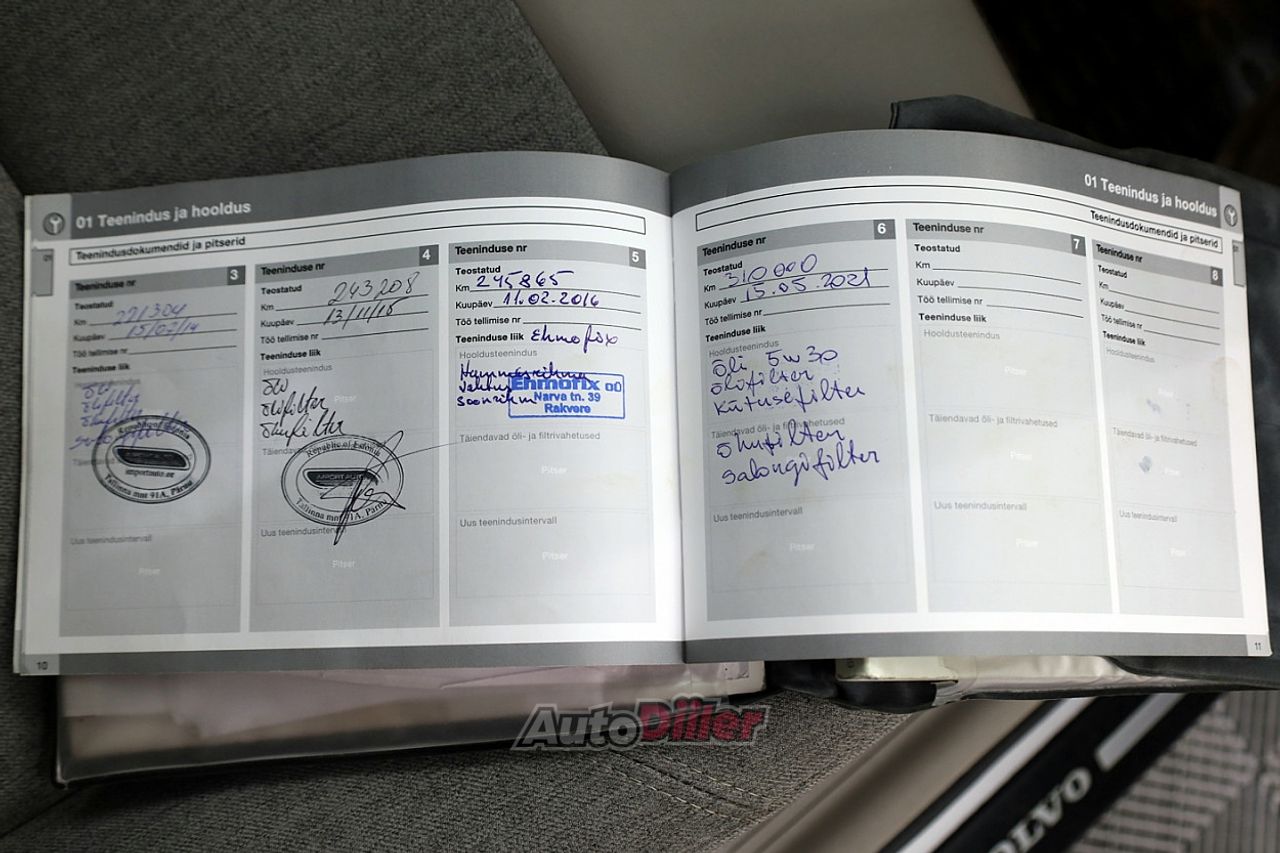 01 Teenindus ja hooldus
Teenindusdokumendid ja pitserid
Teeninduse nr 3
Teostatud
Km 221304
Kuupäev 15/07/14
Töö tellimise nr
Teeninduse liik
õli
õlifilter
õhufilter
Republic of Estonia
importauto.ee
Tallinna mnt 91A, Pärnu
Uus teenindusintervall
Pitser
Teeninduse nr 4
Teostatud
Km 243208
Kuupäev 13/11/15
Töö tellimise nr
Teeninduse liik
Hooldusteenindus
õli
Pitser
õlifilter
õhufilter
Republic of Estonia
Tallinna mnt 91A, Pärnu
Uus teenindusintervall
Pitser
Teeninduse nr 5
Teostatud
Km 245865
Kuupäev 11.02.2016
Töö tellimise nr
Teeninduse liik Ehmofix
Hooldusteenindus
Hammasrihma
vahetus
Soonrihm
Ehmofix OÜ
Narva tn. 39
Rakvere
Täiendavad õli- ja filtrivahetused
Pitser
Uus teenindusintervall
Pitser
10
01 Teenindus ja hooldus
Teenindusdokumendid ja pitserid
Teeninduse nr 6
Teostatud
Km 310000
Kuupäev 15.05.2021
Töö tellimise nr
Teeninduse liik
Hooldusteenindus
Õli 5w30
õlifilter
kütusefilter
Täiendavad õli- ja filtrivahetused
õhufilter
salongifilter
Uus teenindusintervall
Pitser
Teeninduse nr 7
Teostatud
Km
Kuupäev
Töö tellimise nr
Teeninduse liik
Hooldusteenindus
Pitser
Täiendavad õli- ja filtrivahetused
Pitser
Uus teenindusintervall
Pitser
Teeninduse nr 8
Teostatud
Km
Kuupäev
Töö tellimise nr
Teeninduse liik
Hooldusteenindus
Täiendavad õli- ja filtrivahetused
Pitser
Uus teenindusintervall
Pitser
11
AutoDiiler
VOLVO